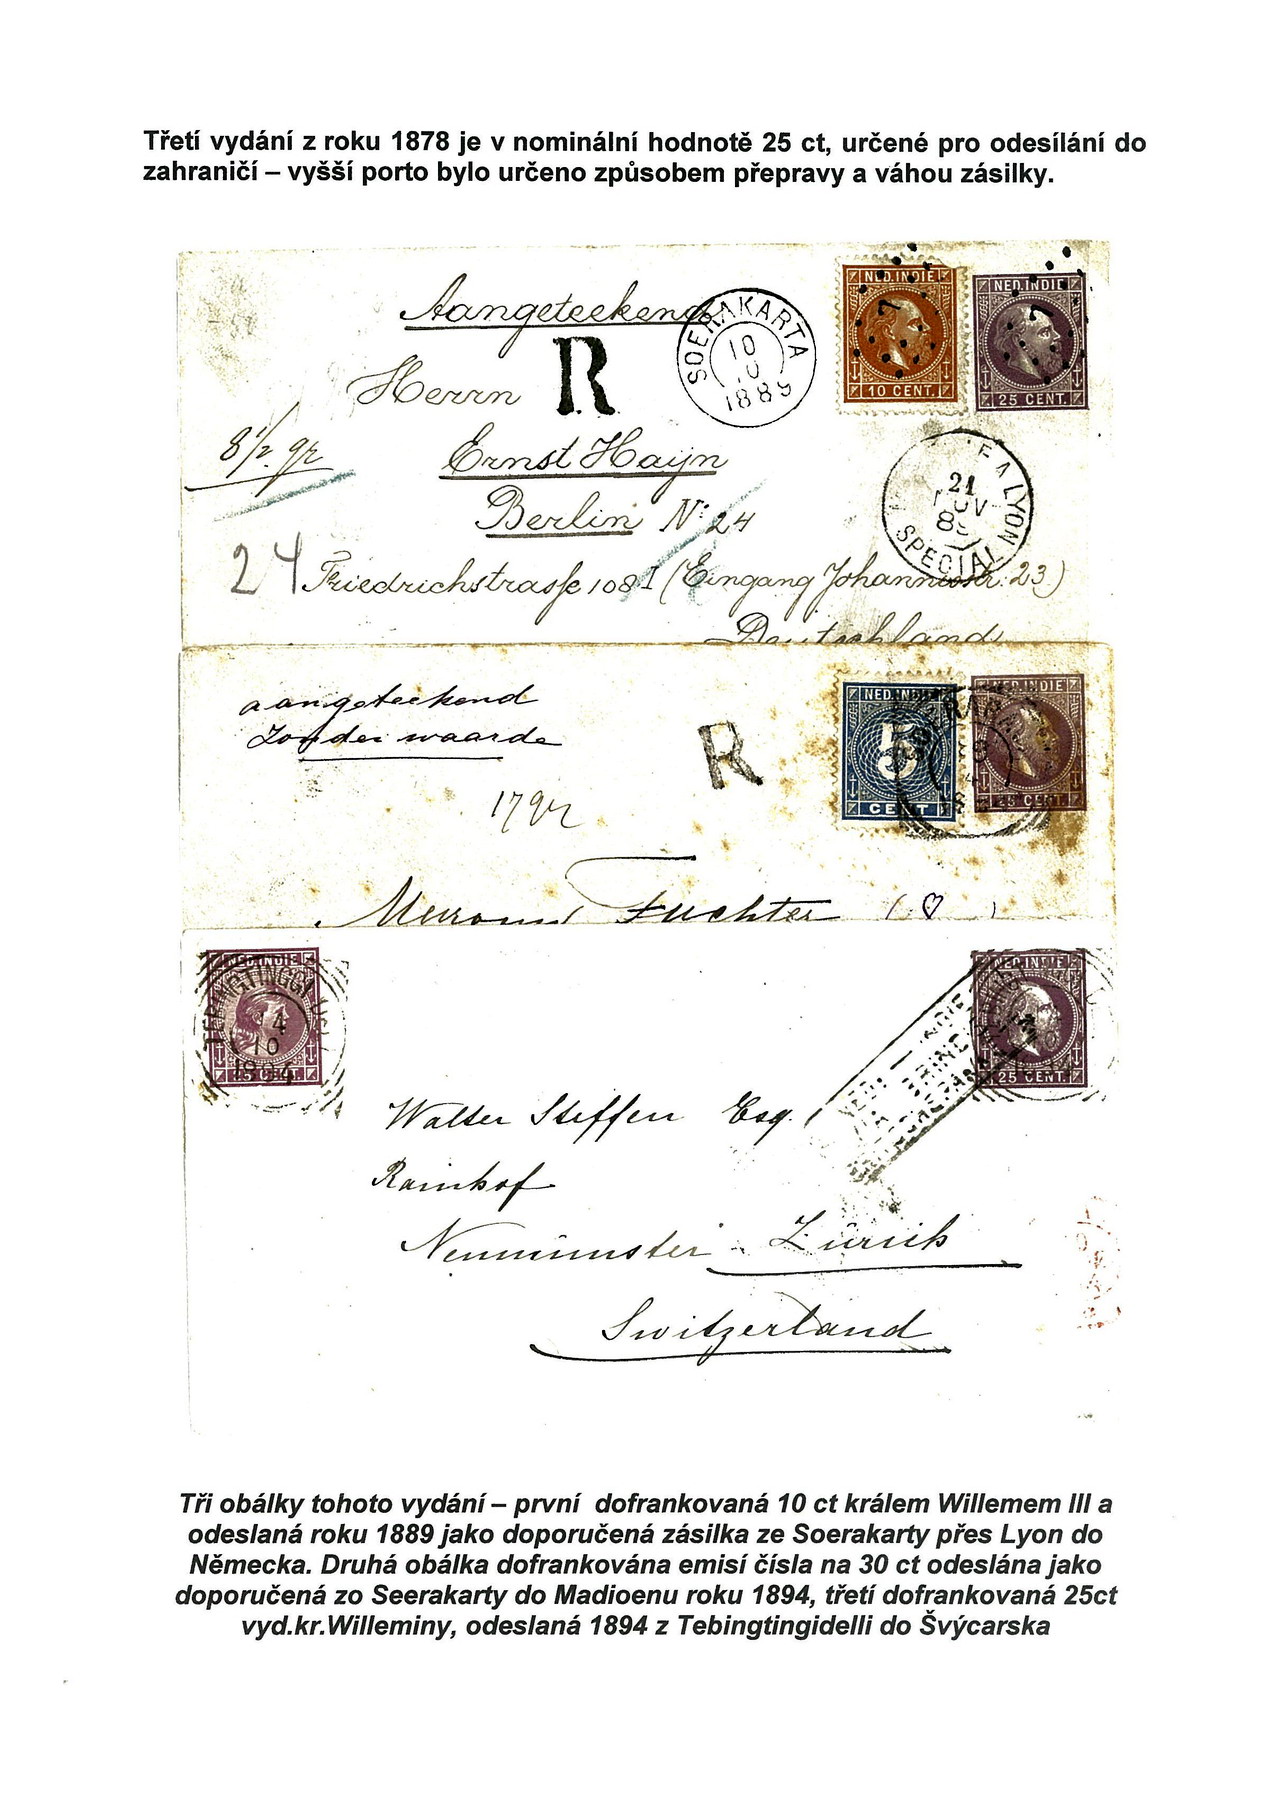 Třetí vydání z roku 1878 je v nominální hodnotě 25 ct, určené pro odesílání do
zahraničí – vyšší porto bylo určeno způsobem přepravy a váhou zásilky.
Aangeteekend
SOERAKARTA
10
10
1889
NED.INDIE
10 CENT.
NED.INDIE
25 CENT.
R
Herrn
8½ gr
Ernst Hayn
Berlin No 24
LYON
21
NOV
SPECIAL
24
Friedrichstrasse 108 I (Eingang Johannisstr. 23)
Deutschland
aangeteekend
Zonder waarde
R
NED.INDIE
5
CENT
NED.INDIE
25 CENT.
17 gr
Fuchter
NED.INDIE
TEBINGTINGGI
14
10
1894
25 CENT.
NED.INDIE
25 CENT.
NED. INDIE
Walter Steffen Esq.
Rainhof
Neumünster Zürich
Switzerland
Tři obálky tohoto vydání – první dofrankovaná 10 ct králem Willemem III a
odeslaná roku 1889 jako doporučená zásilka ze Soerakarty přes Lyon do
Německa. Druhá obálka dofrankována emisí čísla na 30 ct odeslána jako
doporučená zo Seerakarty do Madioenu roku 1894, třetí dofrankovaná 25ct
vyd.kr.Willeminy, odeslaná 1894 z Tebingtingidelli do Švýcarska